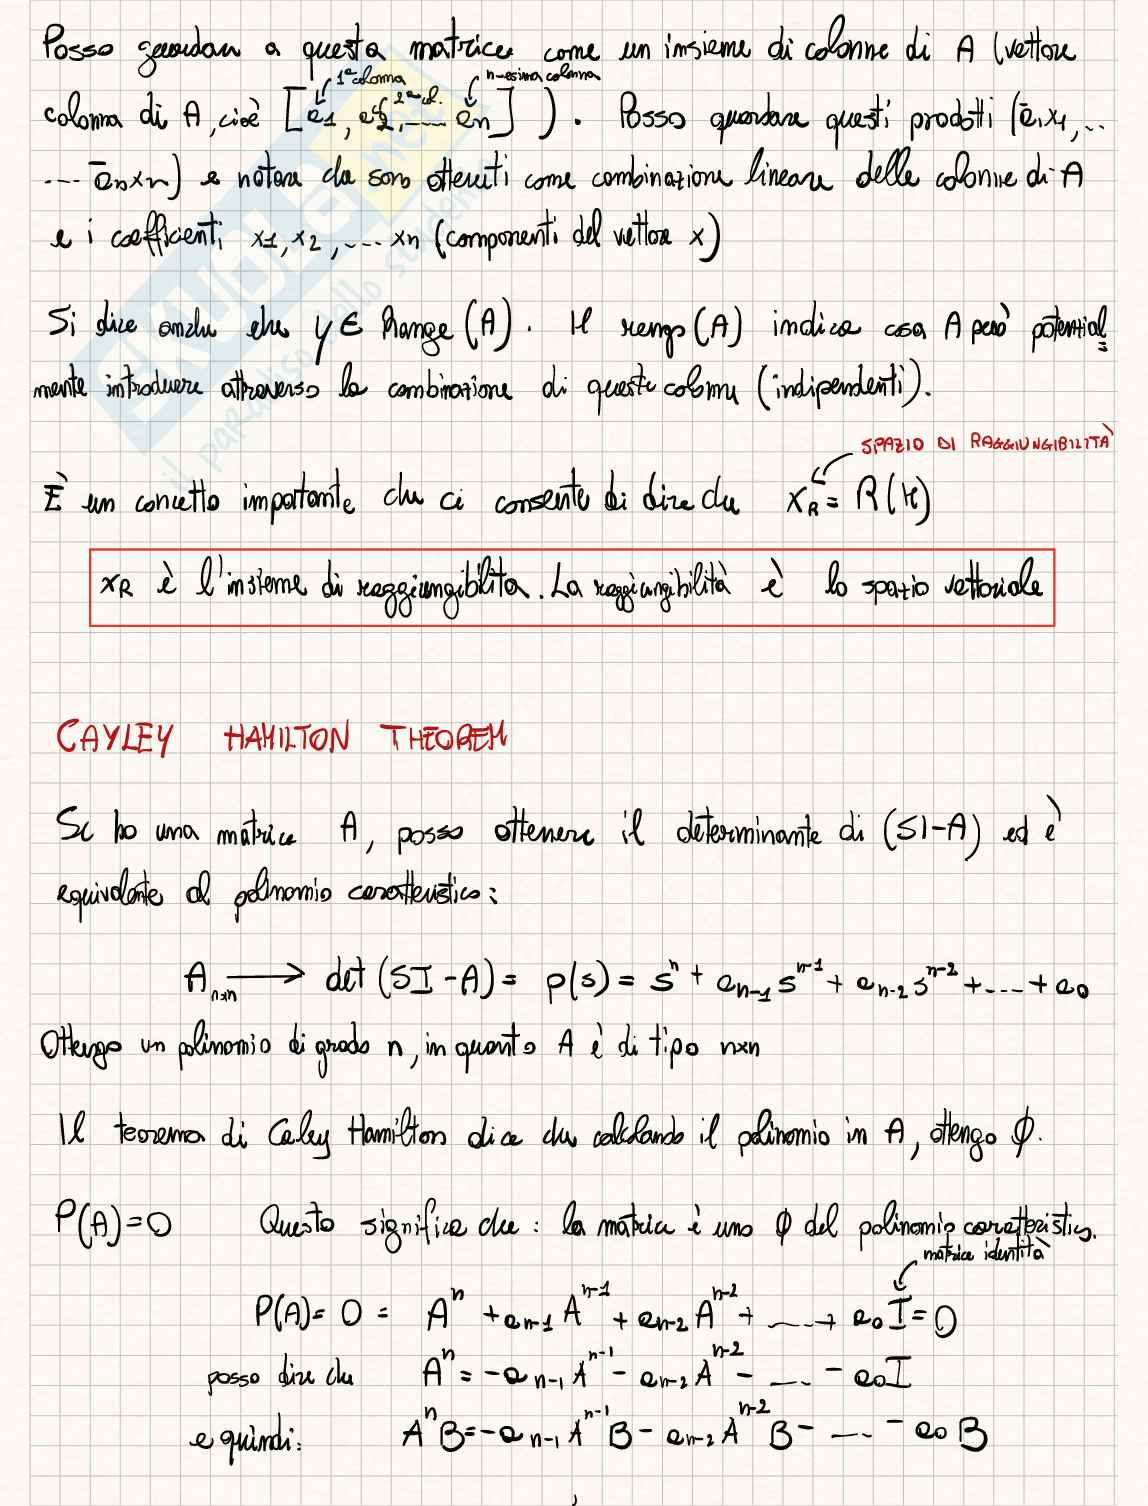 Posso guardare a questa matrice come un insieme di colonne di A (vettore
1ª colonna n-esima colonna
colonna di A, cioè [a1, a2, .... an] ) . Posso guardare questi prodotti (a1x1, ..
2ª col.
.... anxn) e notare che sono ottenuti come combinazione lineare delle colonne di A
e i coefficienti x1, x2, .... xn (componenti del vettore x)
Si dice anche che y ∈ Range (A). Il rango (A) indica cosa A può potenzial
mente introdurre attraverso la combinazione di queste colonne (indipendenti).
SPAZIO DI RAGGIUNGIBILITÀ
È un concetto importante che ci consente di dire che xR = R(K)
xR è l'insieme di raggiungibilità. La raggiungibilità è lo spazio vettoriale
CAYLEY HAMILTON THEOREM
Se ho una matrice A, posso ottenere il determinante di (SI-A) ed è
equivalente al polinomio caratteristico:
A nxn → det (SI-A) = p(s) = s^n + a_{n-1} s^{n-1} + a_{n-2} s^{n-2} + .... + a0
Ottengo un polinomio di grado n, in quanto A è di tipo nxn
Il teorema di Caley Hamilton dice che calcolando il polinomio in A, ottengo ϕ.
P(A)=0 Questo significa che : la matrice è uno ϕ del polinomio caratteristico.
matrice identità
P(A)= 0 = A^n + a_{n-1} A^{n-1} + a_{n-2} A^{n-2} + ....+ a0 I = 0
posso dire che A^n = -a_{n-1} A^{n-1} - a_{n-2} A^{n-2} - .... - a0 I
e quindi: A^n B = -a_{n-1} A^{n-1} B - a_{n-2} A^{n-2} B - .... - a0 B
SKUOLA.net
il paradiso dello studente